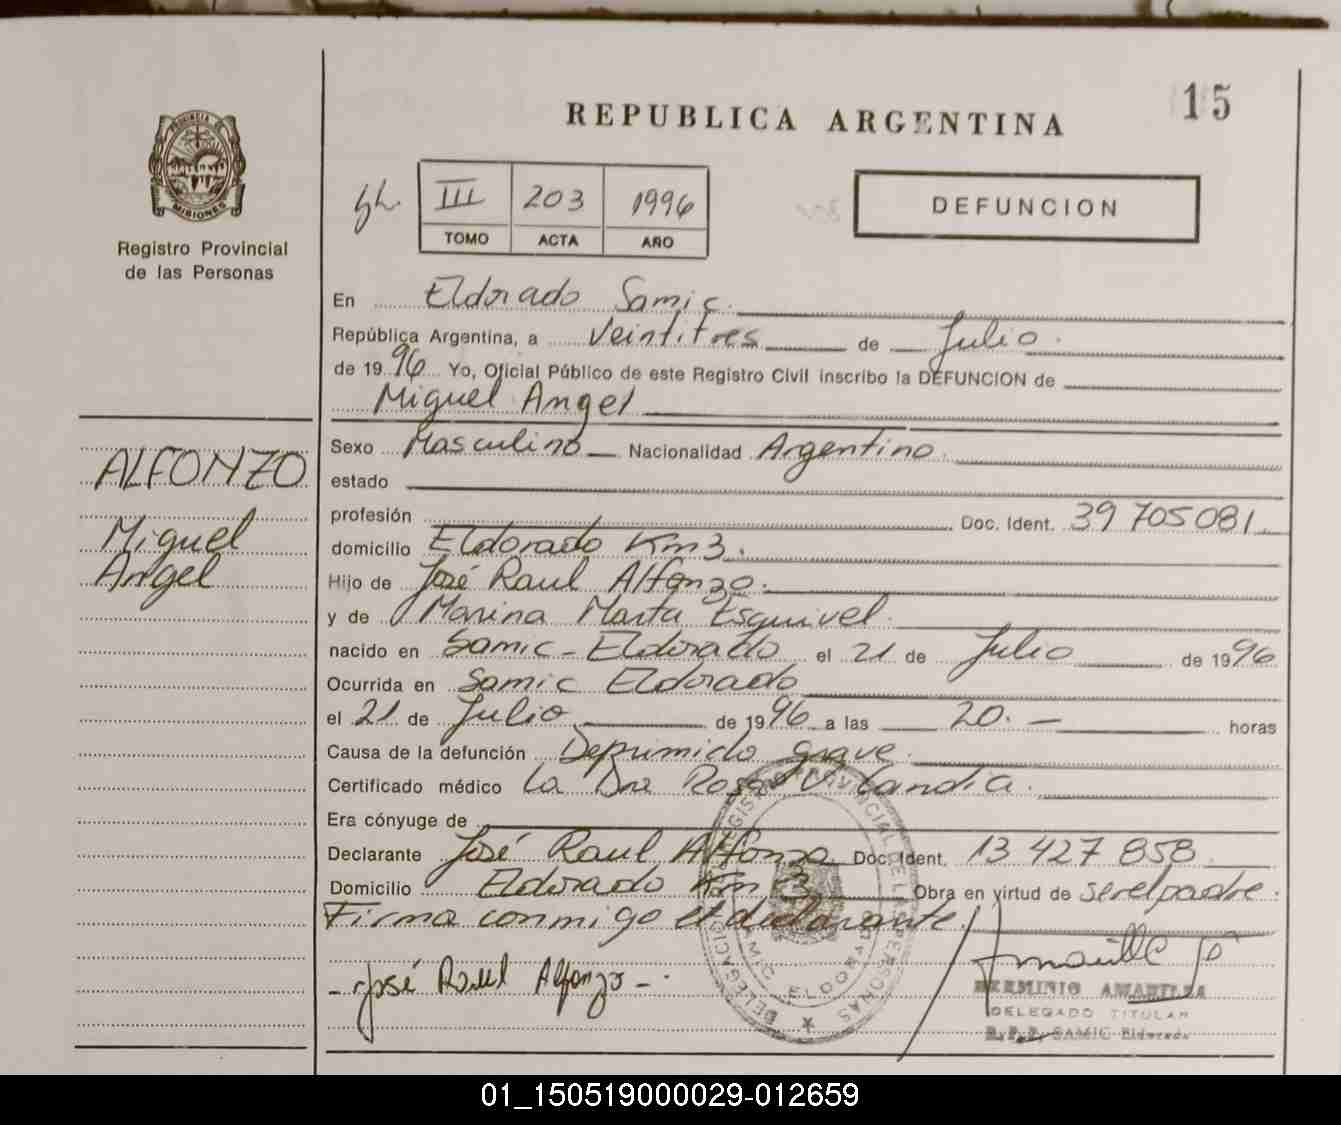 15
REPUBLICA ARGENTINA
PROVINCIA DE
MISIONES
Registro Provincial
de las Personas
III 203 1996
TOMO ACTA AÑO
DEFUNCION
En Eldorado Samic.
República Argentina, a Veintitres de Julio.
de 1996 Yo, Oficial Público de este Registro Civil inscribo la DEFUNCION de
Miguel Angel
ALFONZO
Miguel
Angel
Sexo Masculino Nacionalidad Argentino.
estado
profesión Doc. Ident. 39 705 081
domicilio Eldorado Km 3.
Hijo de José Raul Alfonzo.
y de Marina Marta Esquivel.
nacido en Samic - Eldorado el 21 de Julio de 1996
Ocurrida en Samic Eldorado
el 21 de Julio de 1996 a las 20. — horas
Causa de la defunción Deprimido grave.
Certificado médico La Dra Rosa V. Candia.
Era cónyuge de
Declarante José Raul Alfonzo Doc. Ident. 13 427 858.
Domicilio Eldorado Km 3 Obra en virtud de ser el padre.
Firma conmigo el declarante.
- José Raul Alfonzo - .
HERMINIO AMARILLA
DELEGADO TITULAR
R.P.P. SAMIC Eldorado
DELEGACION REGISTRO PROVINCIAL DE LAS PERSONAS
SAMIC ELDORADO
01_150519000029-012659